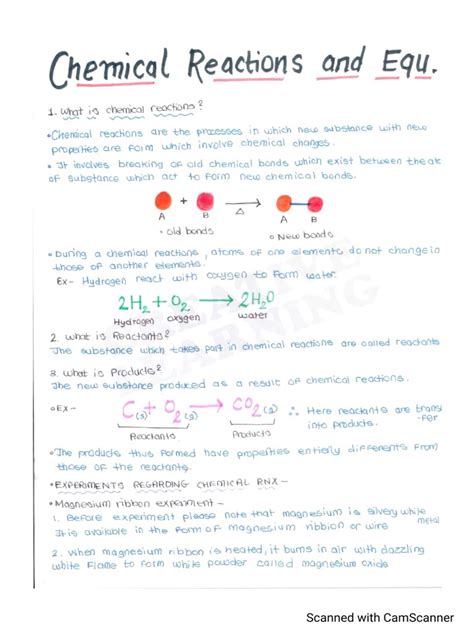 Chemical Reactions and Equ.
1. What is chemical reactions?
•Chemical reactions are the processes in which new substance with new
properties are form which involve chemical changes.
• It involves breaking of old chemical bonds which exist between the at
of substance which act to form new chemical bonds.
A + B → A B
Δ
• old bonds
o New bonds
• During a chemical reactions, atoms of one elements do not change in
those of another elements.
Ex- Hydrogen react with oxygen to form water
2H2 + O2 → 2H2O
Hydrogen oxygen water
2. What is Reactants?
The substance which takes part in chemical reactions are called reactants
3. What is Products?
The new substance produced as a result of chemical reactions.
oEx- C(s) + O2(g) → CO2(g) ∴ Here reactants are transf
-fer
into products.
Reactants Products
•The products thus formed have properties entierly differents from
those of the reactants.
•EXPERIMENTS REGARDING CHEMICAL RNX-
•Magnesium ribbon experiment -
1. Before experiment please note that magnesium is silvery white
metal
It is available in the form of magnesium ribbion or wire
2. When magnesium ribbon is heated, it burns in air with dazzling
white flame to form white powder called magnesium oxide
CREATIVE
LEARNING
Scanned with CamScanner